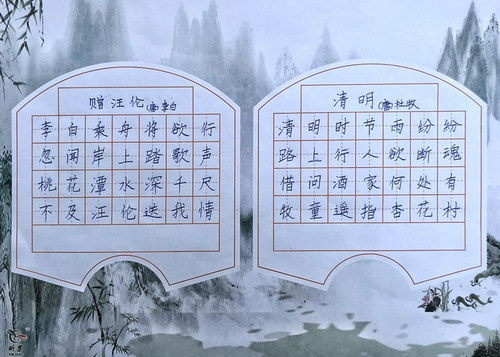 赠汪伦(唐·李白)
李白乘舟将欲行
忽闻岸上踏歌声
桃花潭水深千尺
不及汪伦送我情
清明(唐·杜牧)
清明时节雨纷纷
路上行人欲断魂
借问酒家何处有
牧童遥指杏花村